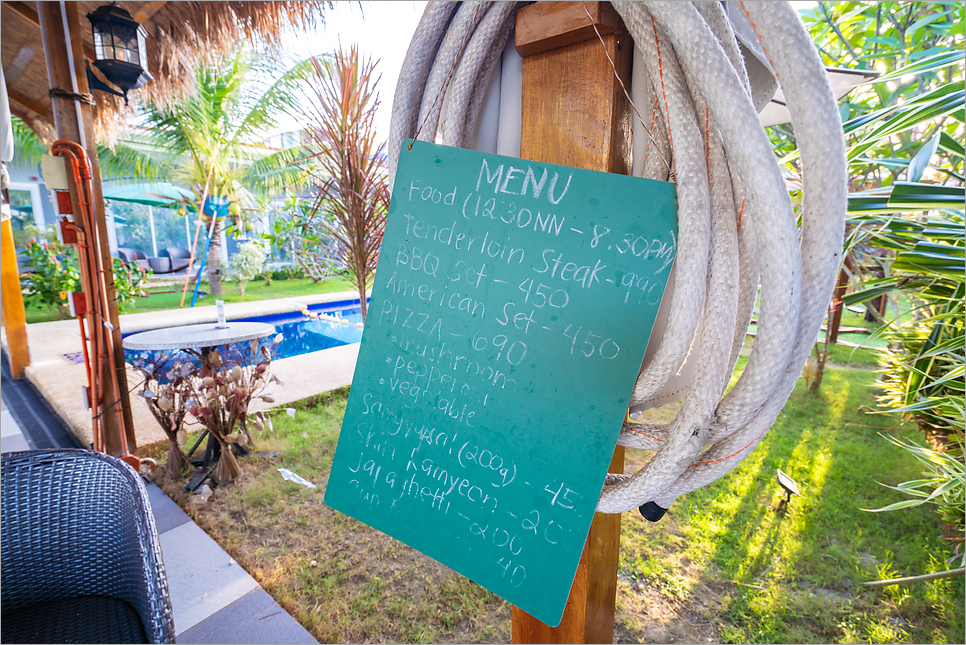 MENU
Food (12.30NN - 8.30PM)
Tenderloin Steak - 990
BBQ Set - 450
American Set - 450
PIZZA - 690
• mushroom
• pepperoni
• vegetable
Samgyupsal (200g) - 45
Shin Ramyeon - 20
- 200
40